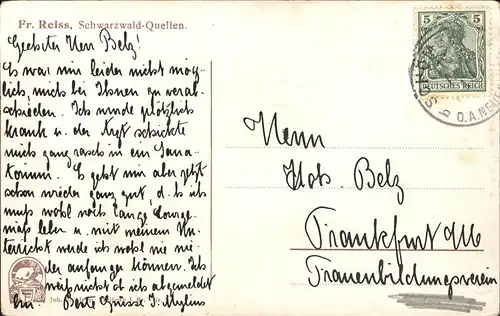 Fr. Reiss, Schwarzwald-Quellen.
Geehrter Herr Belz!
Es war mir leider nicht mög-
lich, mich bei Ihnen zu verab-
schieden. Ich wurde plötzlich
krank u. der Arzt schickte
mich ganz rasch in ein Sana-
torium. Es geht mir aber jetzt
schon wieder ganz gut, d. h. ich
muß wohl noch lange
leben u. mit meinem Un-
terricht werde ich wohl nie wie-
der anfangen können. Ich
weiß nicht ob ich abgemeldet
bin. Beste Grüsse J. Mylius
5 5
DEUTSCHES REICH
O.A.NEU
Herrn
Belz
Frankfurt a/M
Frauenbildungsverein
Joh.